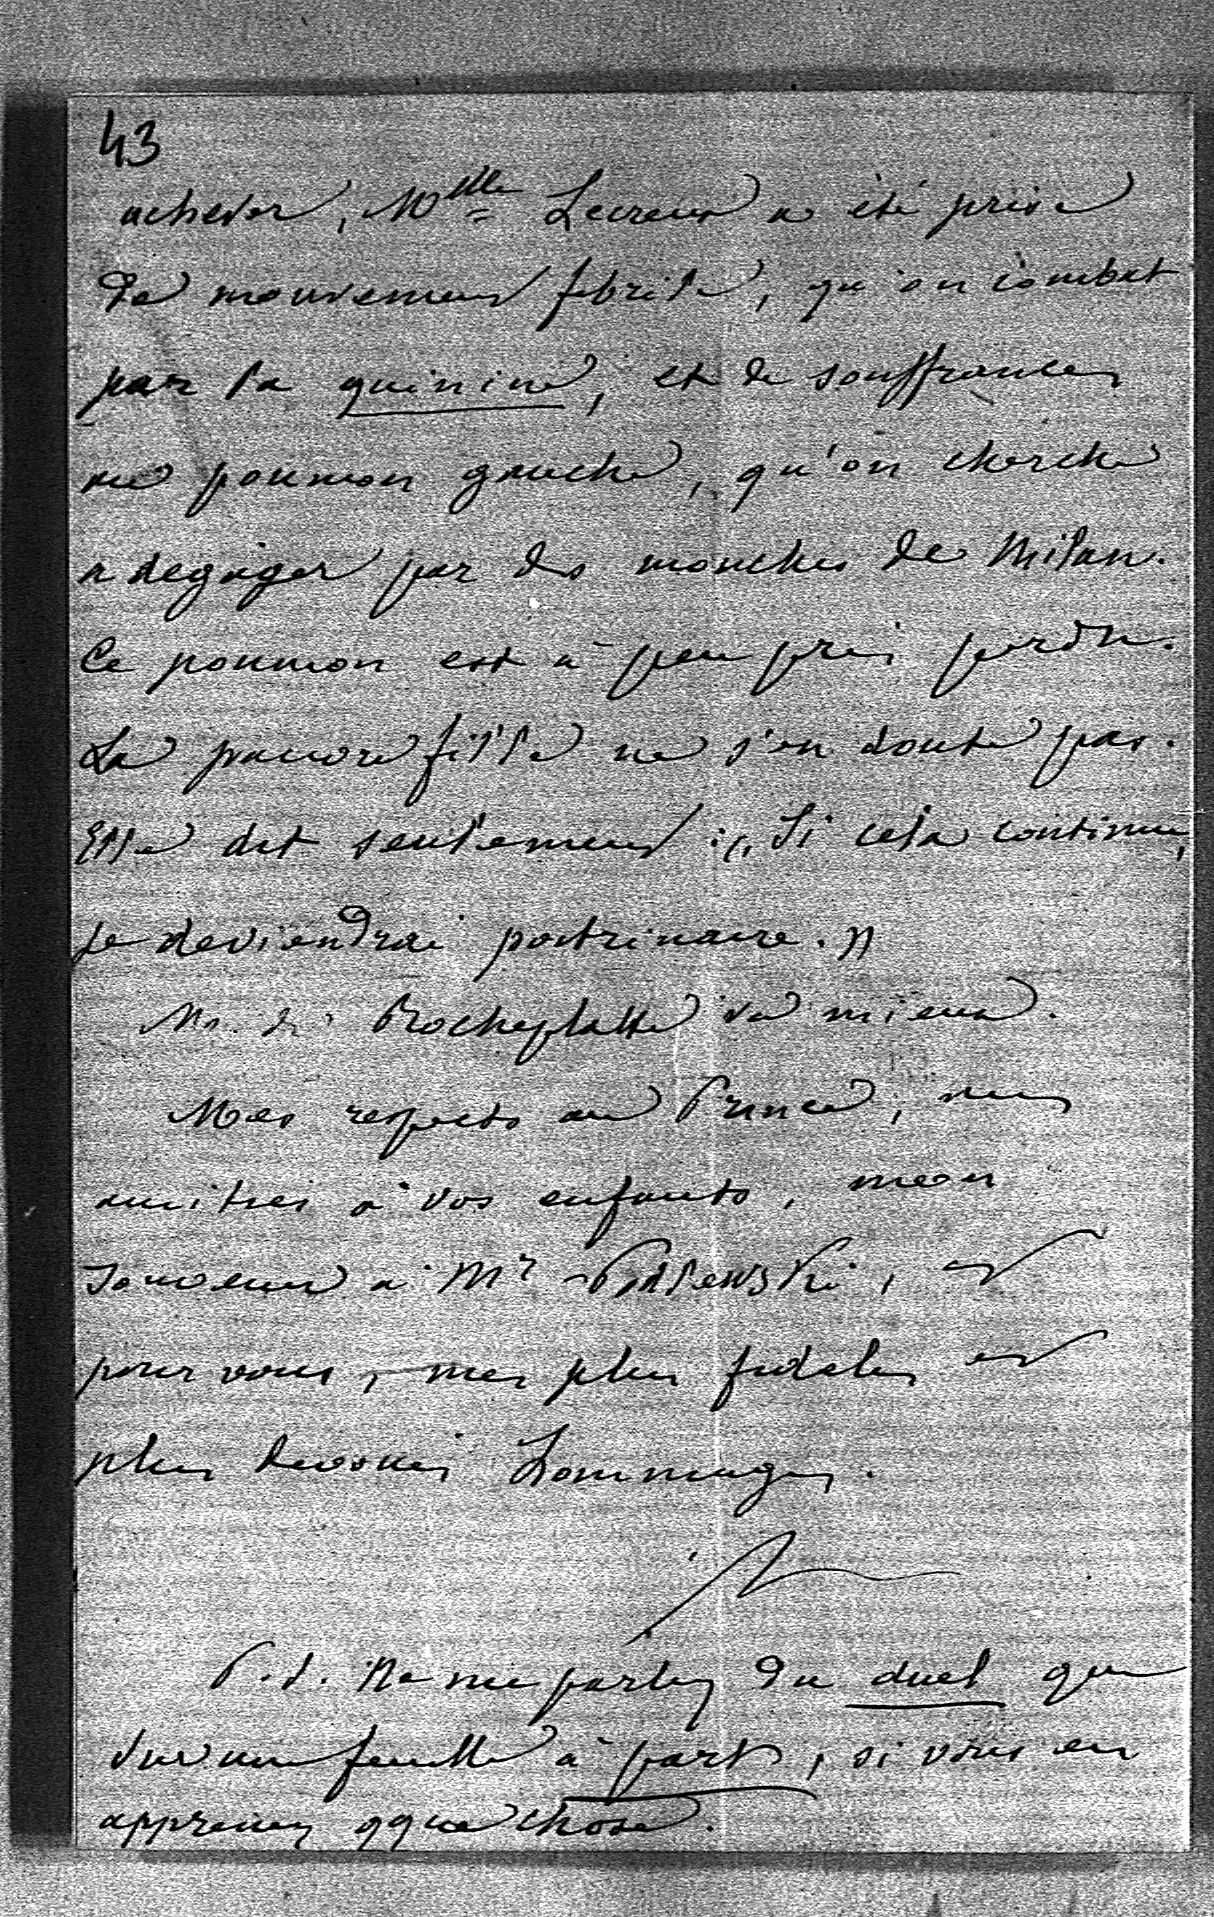 43
achever, Mlle Lecreux a été prise
de mouvement fébrile, qu'on combat
par la quinine, et de souffrances
au poumon gauche, qu'on cherche
a degager par des mouches de Milan.
Ce poumon est à peu près perdu.
La pauvre fille ne s'en doute pas.
Elle dit seulement : „Si cela continue,
je deviendrai poitrinaire."
Mr. de Rocheplatte va mieux.
Mes respects au Prince, mes
amitiés à vos enfants, mon
souvenir a Mr et
pour vous, mes plus fidèles et
plus dévoués hommages.
P.S. Ne me parlez du duel que
sur une feuille à part, si vous en
apprenez qque chose.